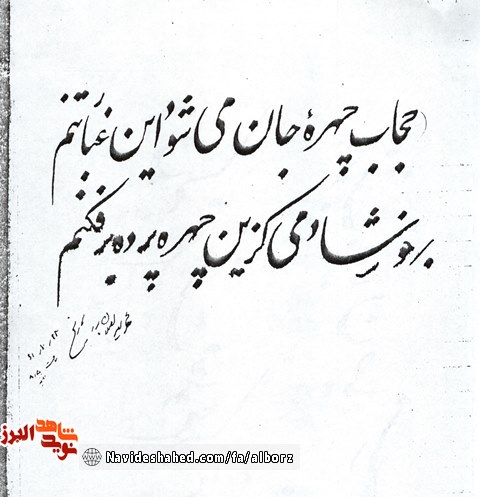 حجاب چهرهٔ جان می شود این غبار تنم
خوشا دمی کزین چهره پرده بر فکنم
نوید شاهد البرز
Navideshahed.com/fa/alborz